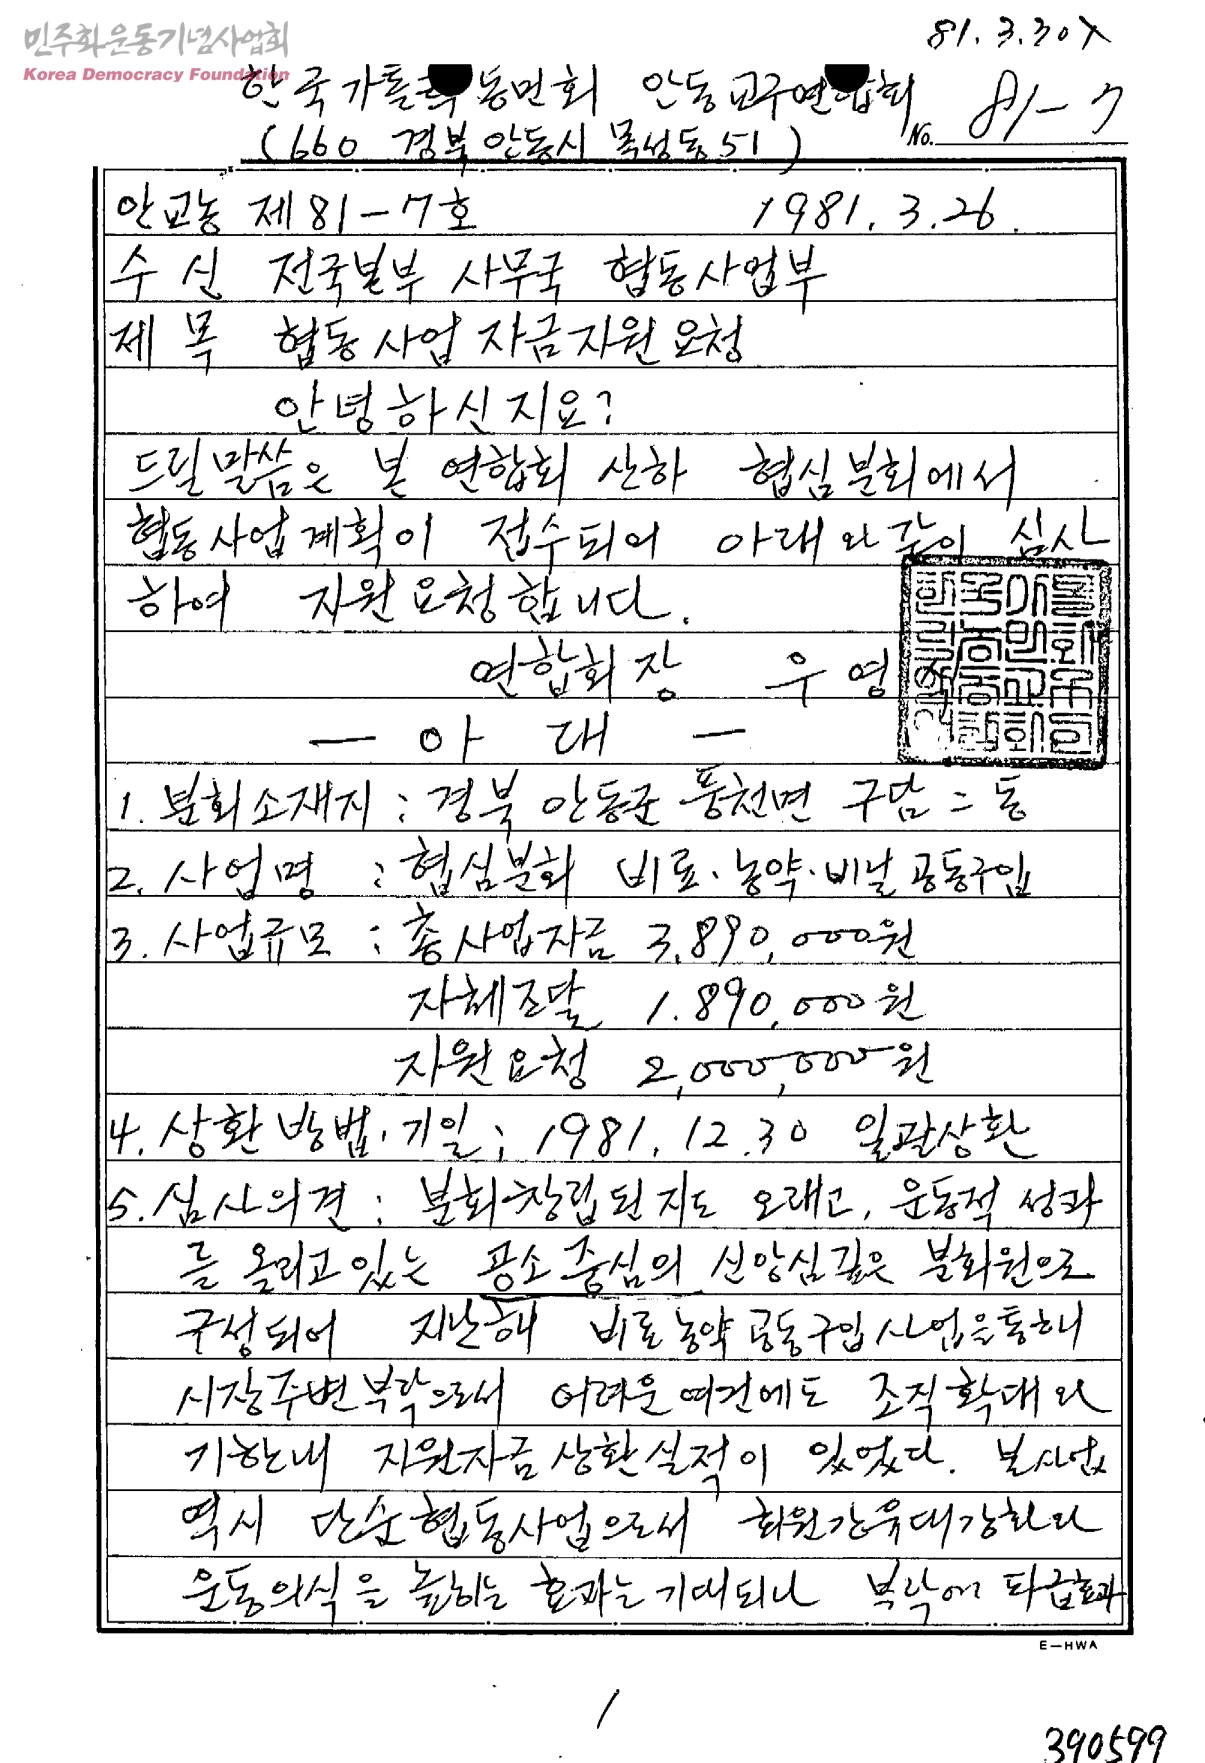 민주화운동기념사업회
Korea Democracy Foundation
81.3.30
한국가톨릭농민회 안동교구연합회
(660 경북 안동시 목성동 51)
No. 81-7
안교농 제81-7호 1981.3.26.
수 신 전국본부 사무국 협동사업부
제 목 협동사업 자금지원 요청
안녕하신지요?
드릴 말씀은 본 연합회 산하 협심분회에서
협동사업계획이 접수되어 아래와 같이 심사
하여 지원 요청합니다.
연합회장 우영
— 아 래 —
1. 분회소재지 : 경북 안동군 풍천면 구담 2동
2. 사업명 : 협심분회 비료·농약·비닐 공동구입
3. 사업규모 : 총사업자금 3,890,000원
자체조달 1,890,000원
지원요청 2,000,000원
4. 상환방법·기일 : 1981.12.30 일괄상환
5. 심사의견 : 분회창립된지도 오래고, 운동적 성과
를 올리고 있는 공소 중심의 신앙심깊은 분회원으로
구성되어 지난해 비료농약 공동구입사업을통해
시장주변부락으로서 어려운여건에도 조직확대와
기한내 지원자금상환실적이 있었다. 본사업
역시 단순협동사업으로서 회원간유대강화와
운동의식을 높히는 효과는 기대되나 부락에 파급효과
E-HWA
1
390599